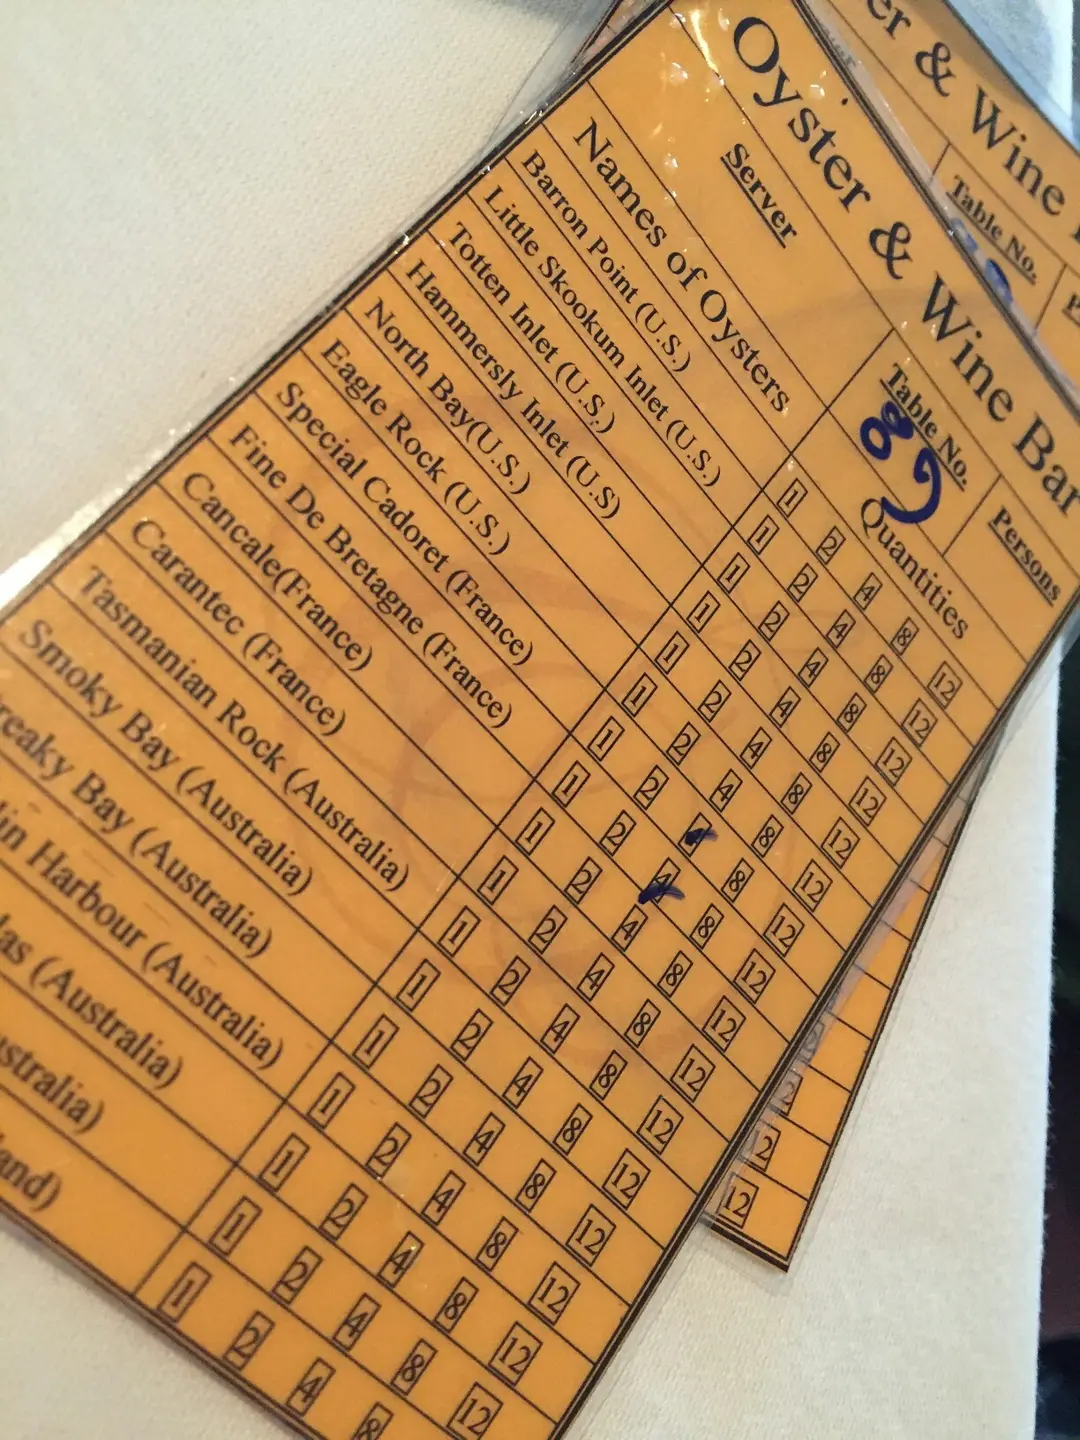 Oyster & Wine Bar
Server
Table No.
Persons
Names of Oysters
Quantities
Barron Point (U.S.) 1 2 4 8 12
Little Skookum Inlet (U.S.) 1 2 4 8 12
Totten Inlet (U.S.) 1 2 4 8 12
Hammersly Inlet (U.S) 1 2 4 8 12
North Bay(U.S.) 1 2 4 8 12
Eagle Rock (U.S.) 1 2 4 8 12
Special Cadoret (France) 1 2 4 8 12
Fine De Bretagne (France) 1 2 4 8 12
Cancale(France) 1 2 4 8 12
Carantec (France) 1 2 4 8 12
Tasmanian Rock (Australia) 1 2 4 8 12
Smoky Bay (Australia) 1 2 4 8 12
Bay (Australia) 1 2 4 8 12
Harbour (Australia) 1 2 4 8 12
(Australia) 1 2 4 8 12
1 2 4 8 12
1 2 4 8
& Wine
Table No.
12
12